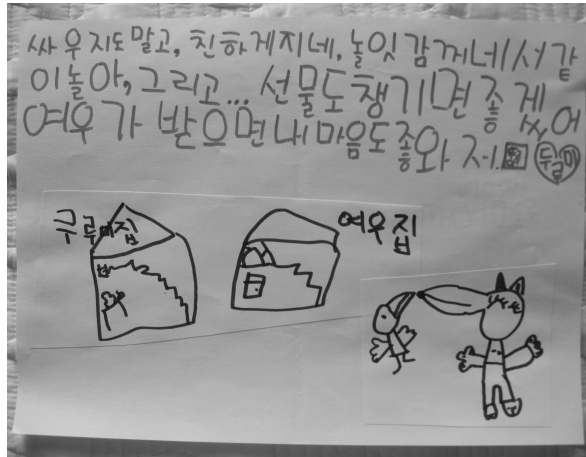 싸우지도말고, 친하게지네, 놀잇감꺼네서같
이놀아, 그리고... 선물도챙기면좋겠어
여우가 받으면내마음도좋와저.
두루미
여우집